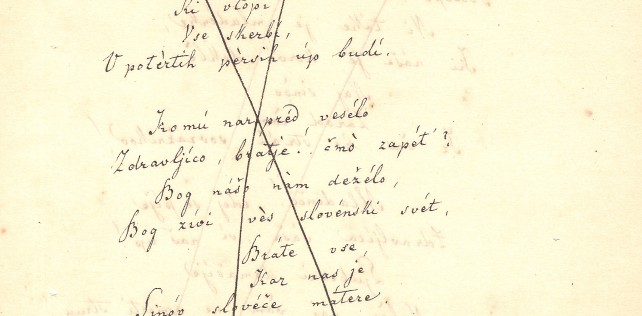 Ki vtopi
Vse skerbi,
V potèrtih pèrsih úp budí.
Komú narpréd vesélo
Zdravljíco, bratje! čmò zapét'?
Bog nášo nàm dežélo,
Bog živi vès slovénski svét,
Bráte vse,
Kar nas jé,
Sinóv slovéče mátere.